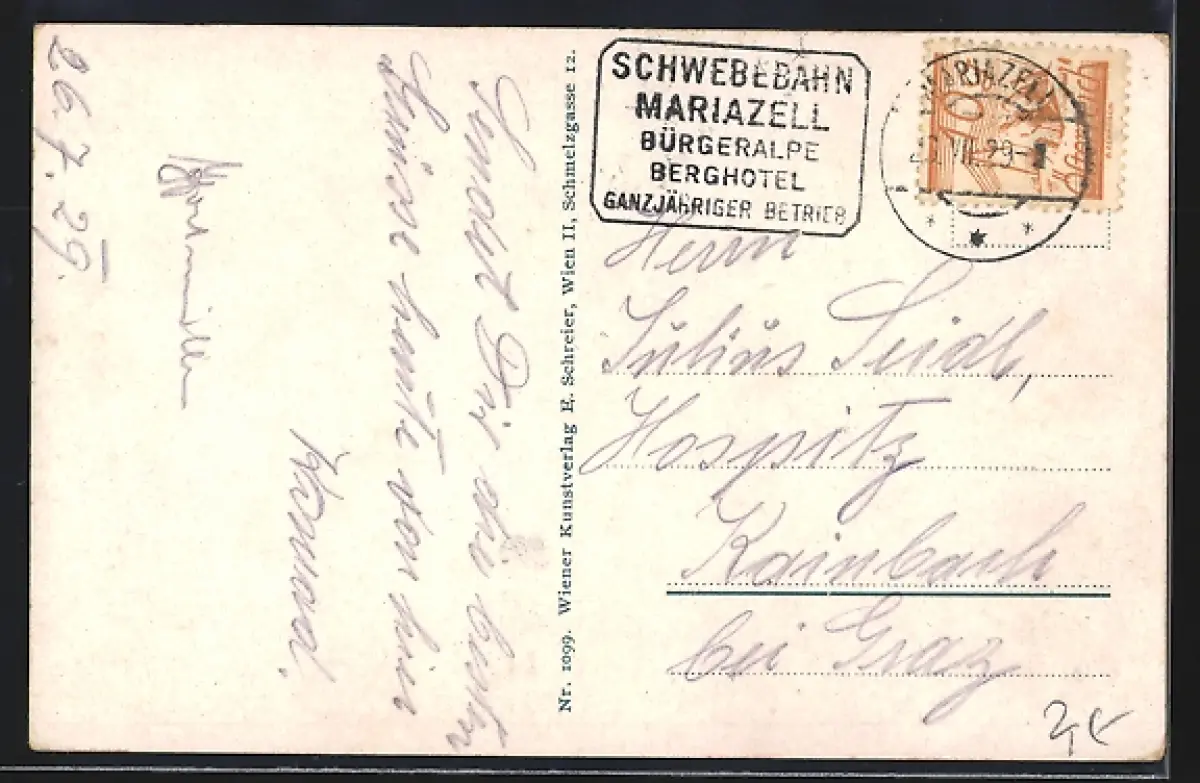 26.7.29.
Sendet Dir die besten
Grüsse heute von hier
Nr. 1099. Wiener Kunstverlag E. Schreier, Wien II, Schmelzgasse 12.
SCHWEBEBAHN
MARIAZELL
BÜRGERALPE
BERGHOTEL
GANZJÄHRIGER BETRIEB
MARIAZELL
VII 29
10
Herrn
Julius Seidl,
Hospitz
Kainbach
bei Graz